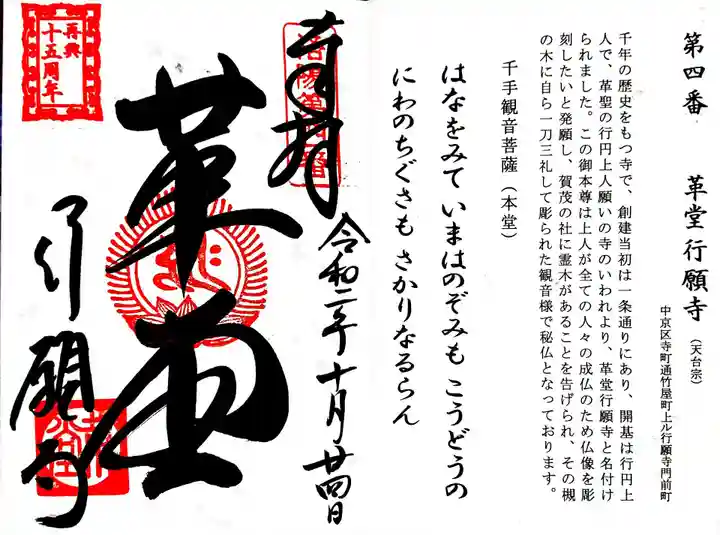 第四番　革堂行願寺（天台宗）
中京区寺町通竹屋町上ル行願寺門前町
千年の歴史をもつ寺で、創建当初は一条通りにあり、開基は行円上
人で、革聖の行円上人願いの寺のいわれより、革堂行願寺と名付け
られました。この御本尊は上人が全ての人々の成仏のため仏像を彫
刻したいと発願し、賀茂の社に霊木があることを告げられ、その槻
の木に自ら一刀三礼して彫られた観音様で秘仏となっております。
千手観音菩薩（本堂）
はなをみて いまはのぞみも こうどうの
にわのちぐさも さかりなるらん
奉拝
洛陽第四番
令和二年十月廿四日
革堂
行願寺
再興
十五周年